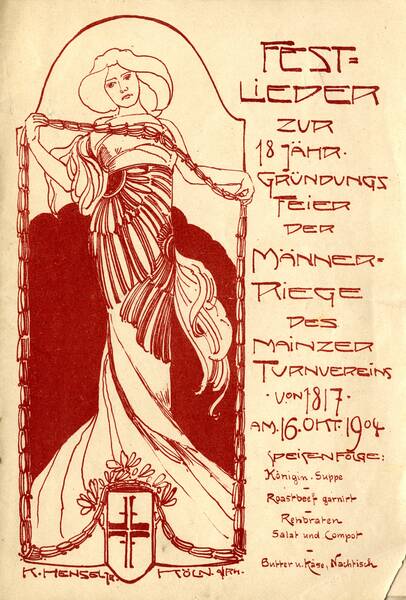 FEST=
LIEDER
ZUR
18 JÄHR.
GRÜNDUNGS
FEIER
DER
MÄNNER=
RIEGE
DES
MAINZER
TURNVEREINS
· VON 1817 ·
AM 16. OKT. 1904
SPEISENFOLGE:
Königin-Suppe
–
Roastbeef garnirt
–
Rehbraten
Salat und Compot
–
Butter u. Käse, Nachtisch
K. HENSEL jr. KÖLN a/Rh.